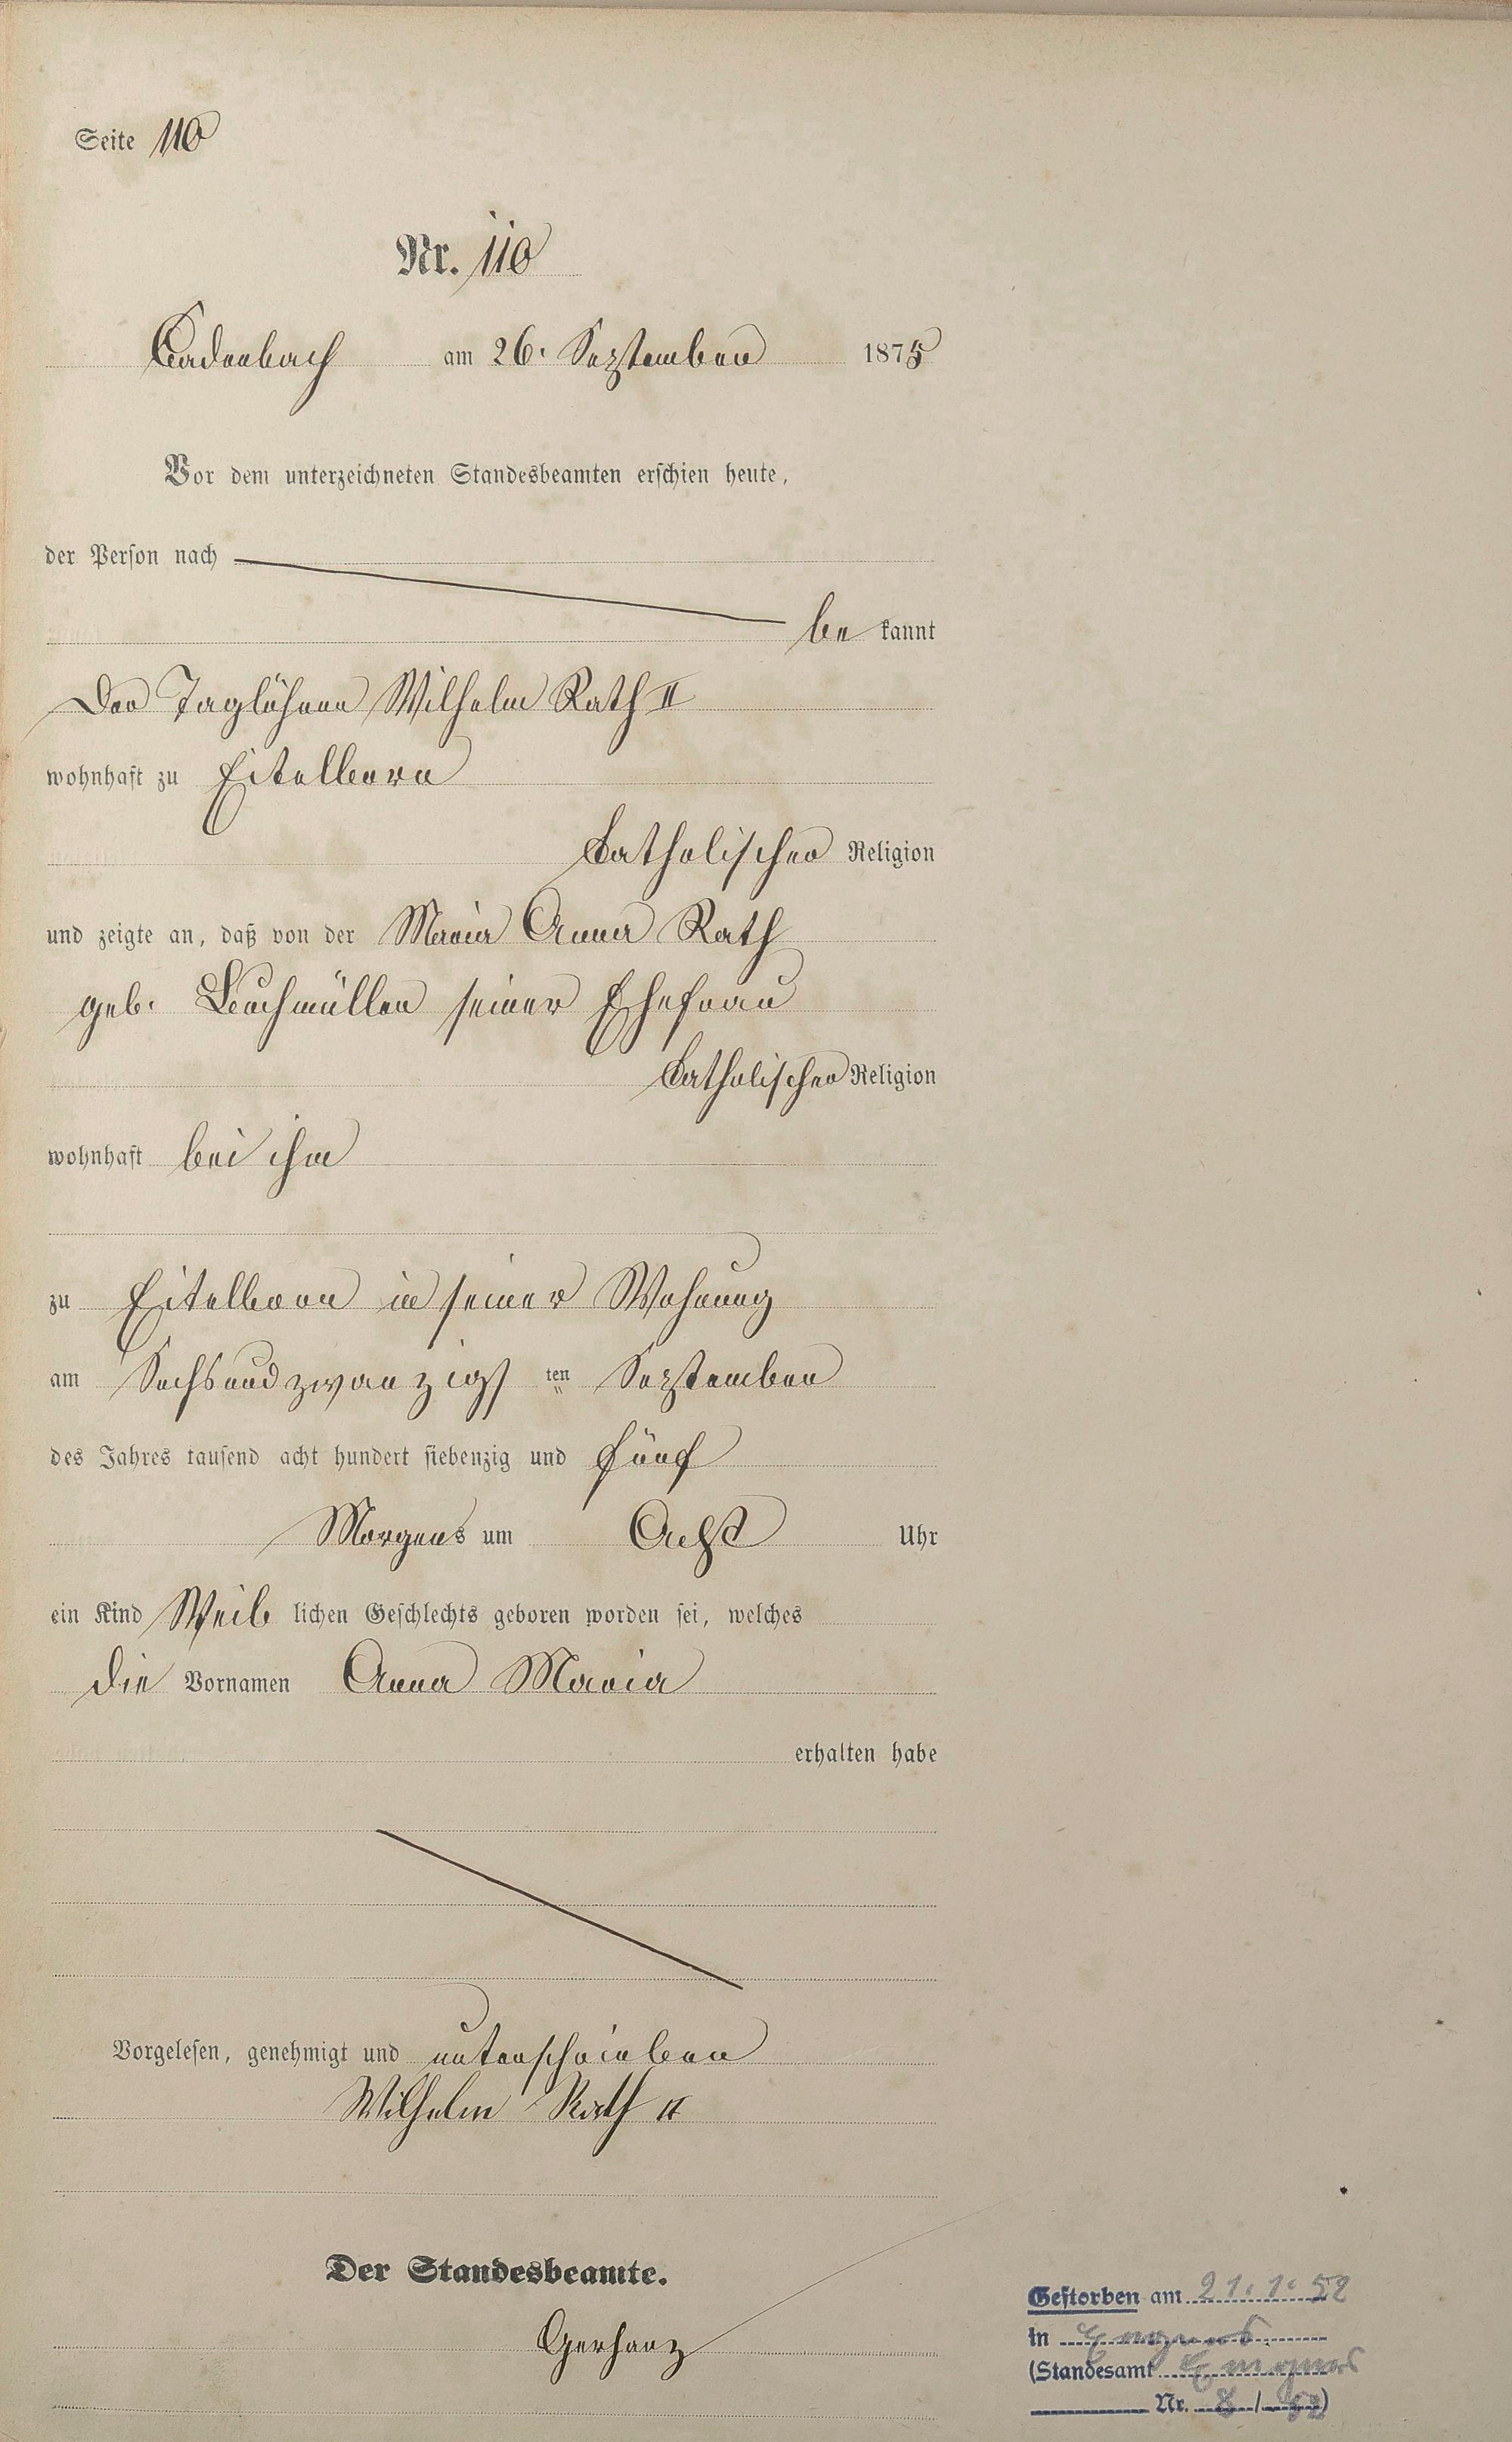 Seite 110
Nr. 110
Cadenbach am 26. September 1875
Vor dem unterzeichneten Standesbeamten erschien heute,
der Person nach
be kannt
Der Taglöhner Wilhelm Rath II
wohnhaft zu Eitelborn
Catholischer Religion
und zeigte an, daß von der Maria Anna Rath
geb. Bachmüller seiner Ehefrau
Catholischer Religion
wohnhaft bei ihm
zu Eitelborn in seiner Wohnung
am Sechsundzwanzigs ten September
des Jahres tausend acht hundert siebenzig und fünf
Morgens um Acht Uhr
ein Kind Weib lichen Geschlechts geboren worden sei, welches
die Vornamen Anna Maria
erhalten habe
Vorgelesen, genehmigt und unterschrieben
Wilhelm Rath II
Der Standesbeamte.
Gerharz
Gestorben am 21.1.52
in Engers
(Standesamt Engers
Nr. 8/52)